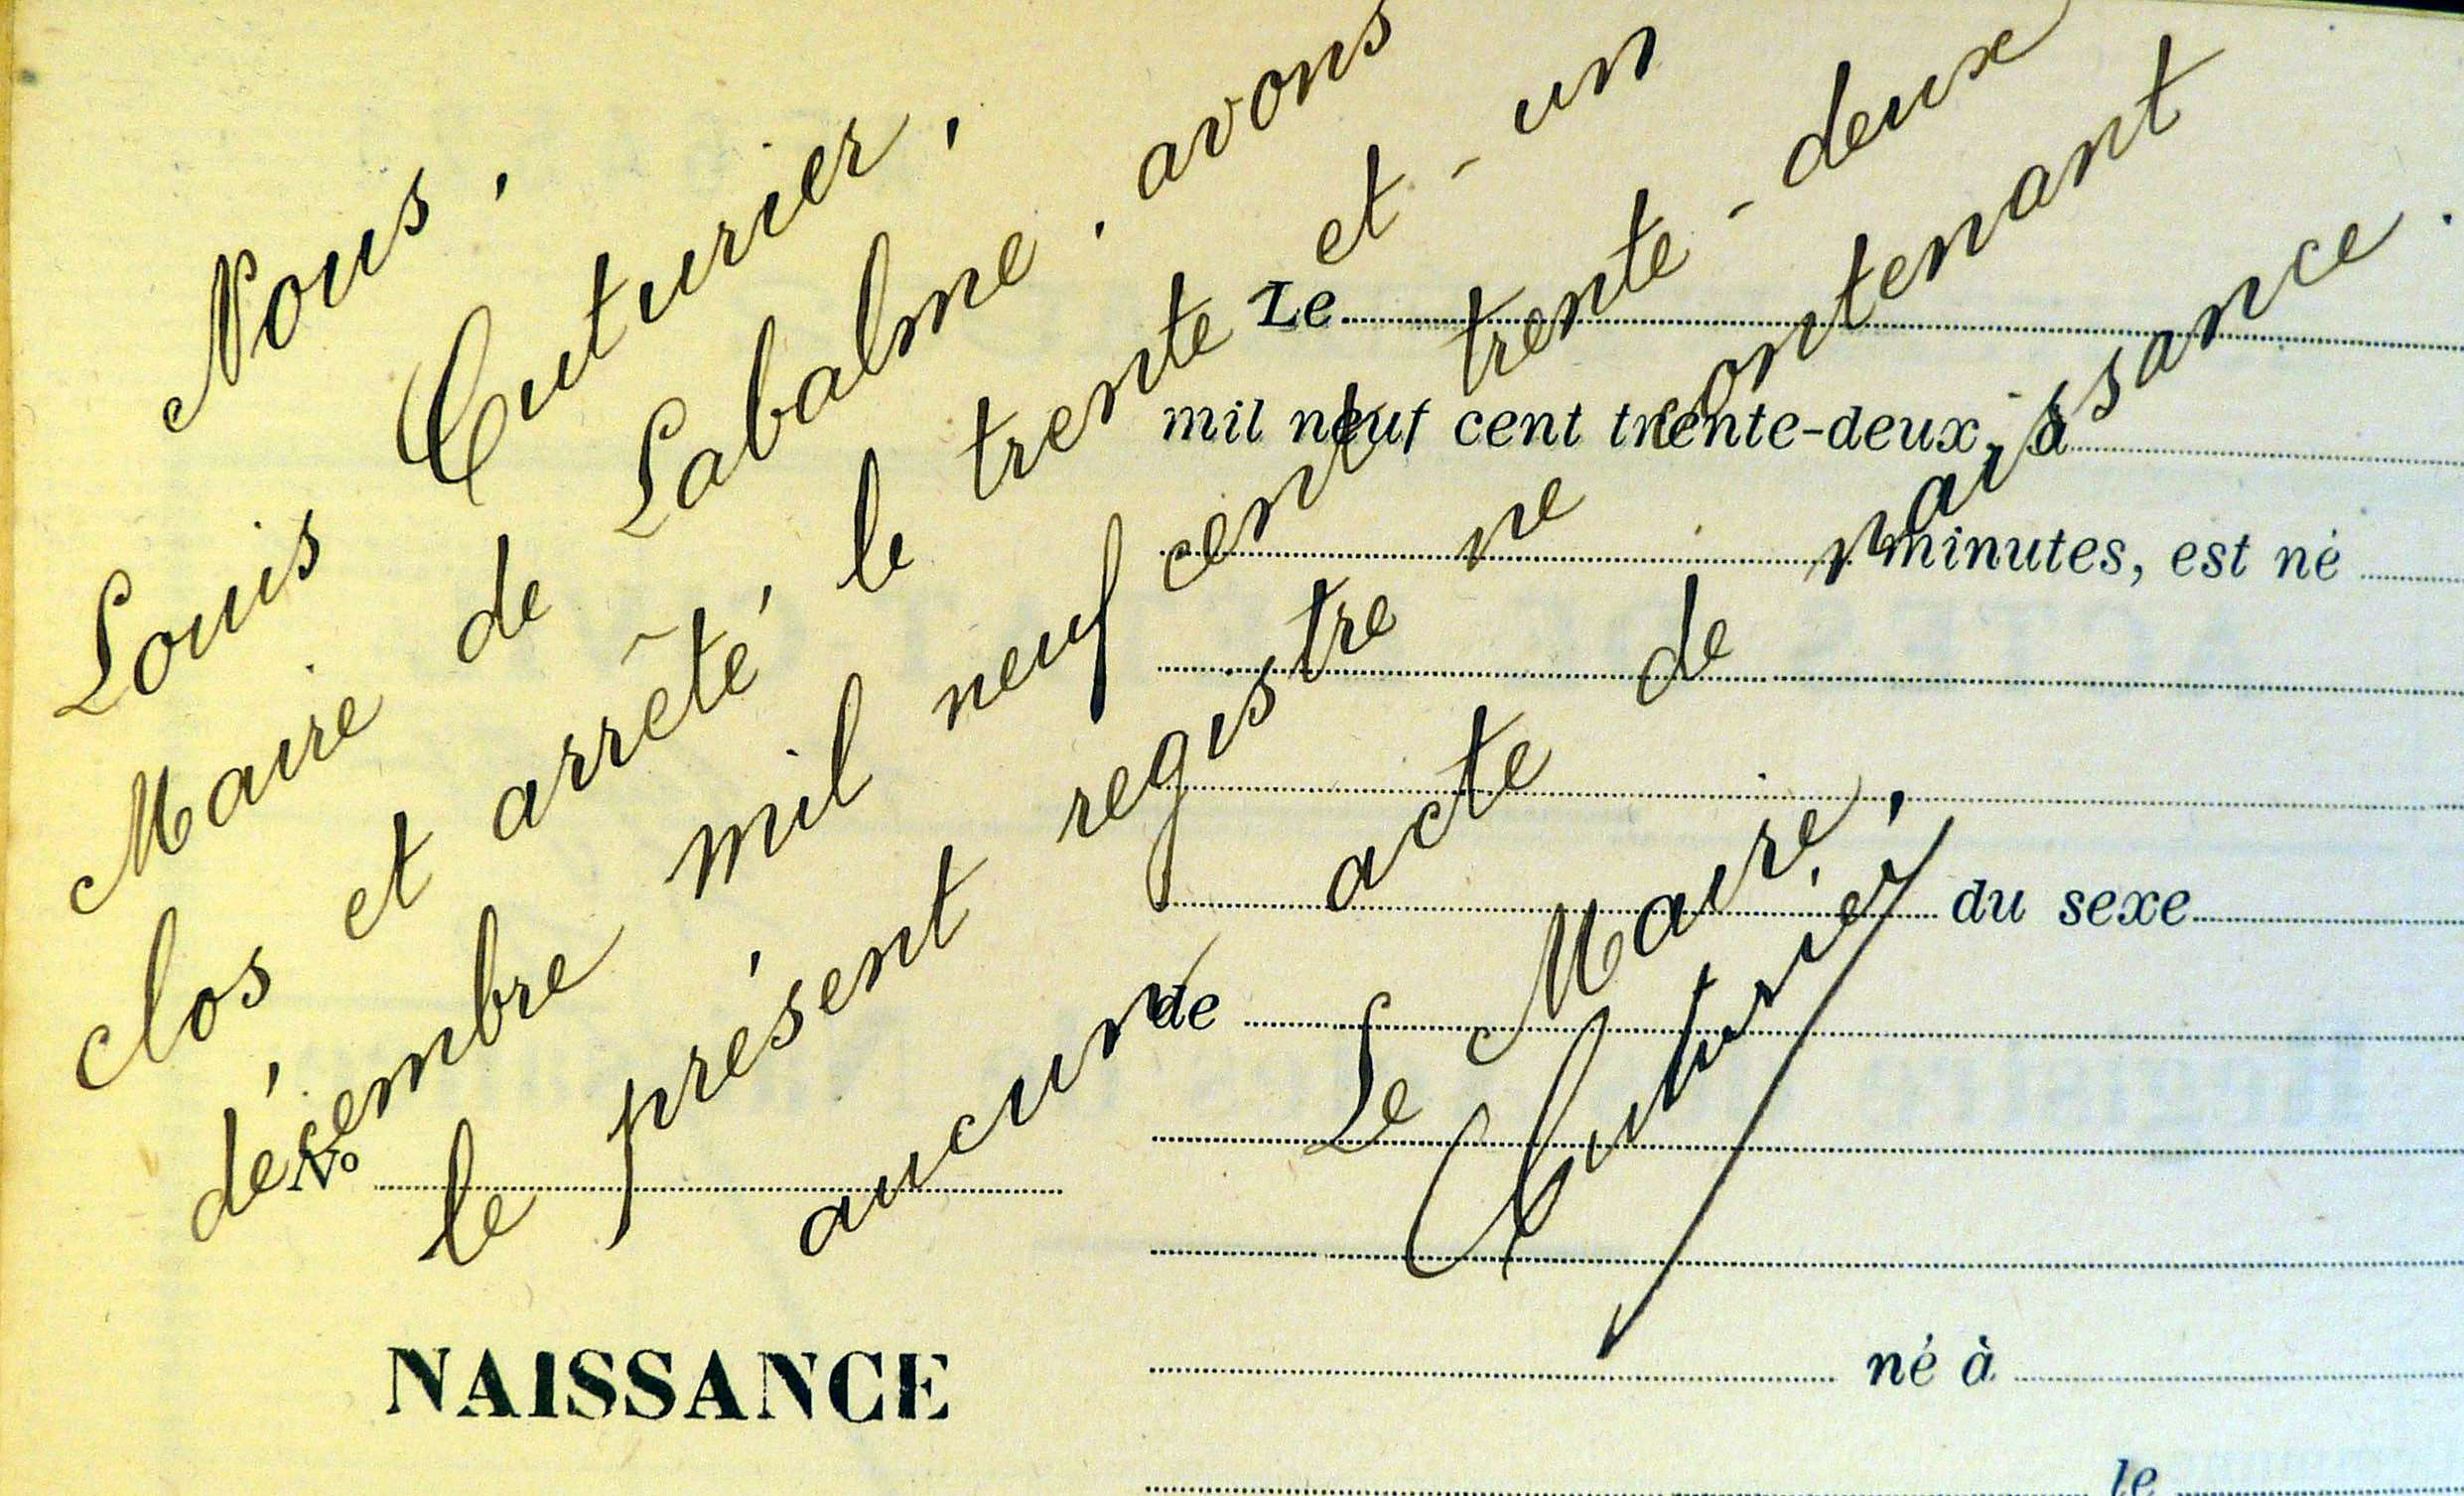 Nous,
Louis Cuturier,
Maire de Labalme, avons
clos et arrêté le trente et-un
décembre mil neuf cent trente-deux
le présent registre ne contenant
aucun acte de naissance.
Le Maire,
Cuturier
Le
mil neuf cent trente-deux, à
minutes, est né
du sexe
de
No
NAISSANCE
né à
le